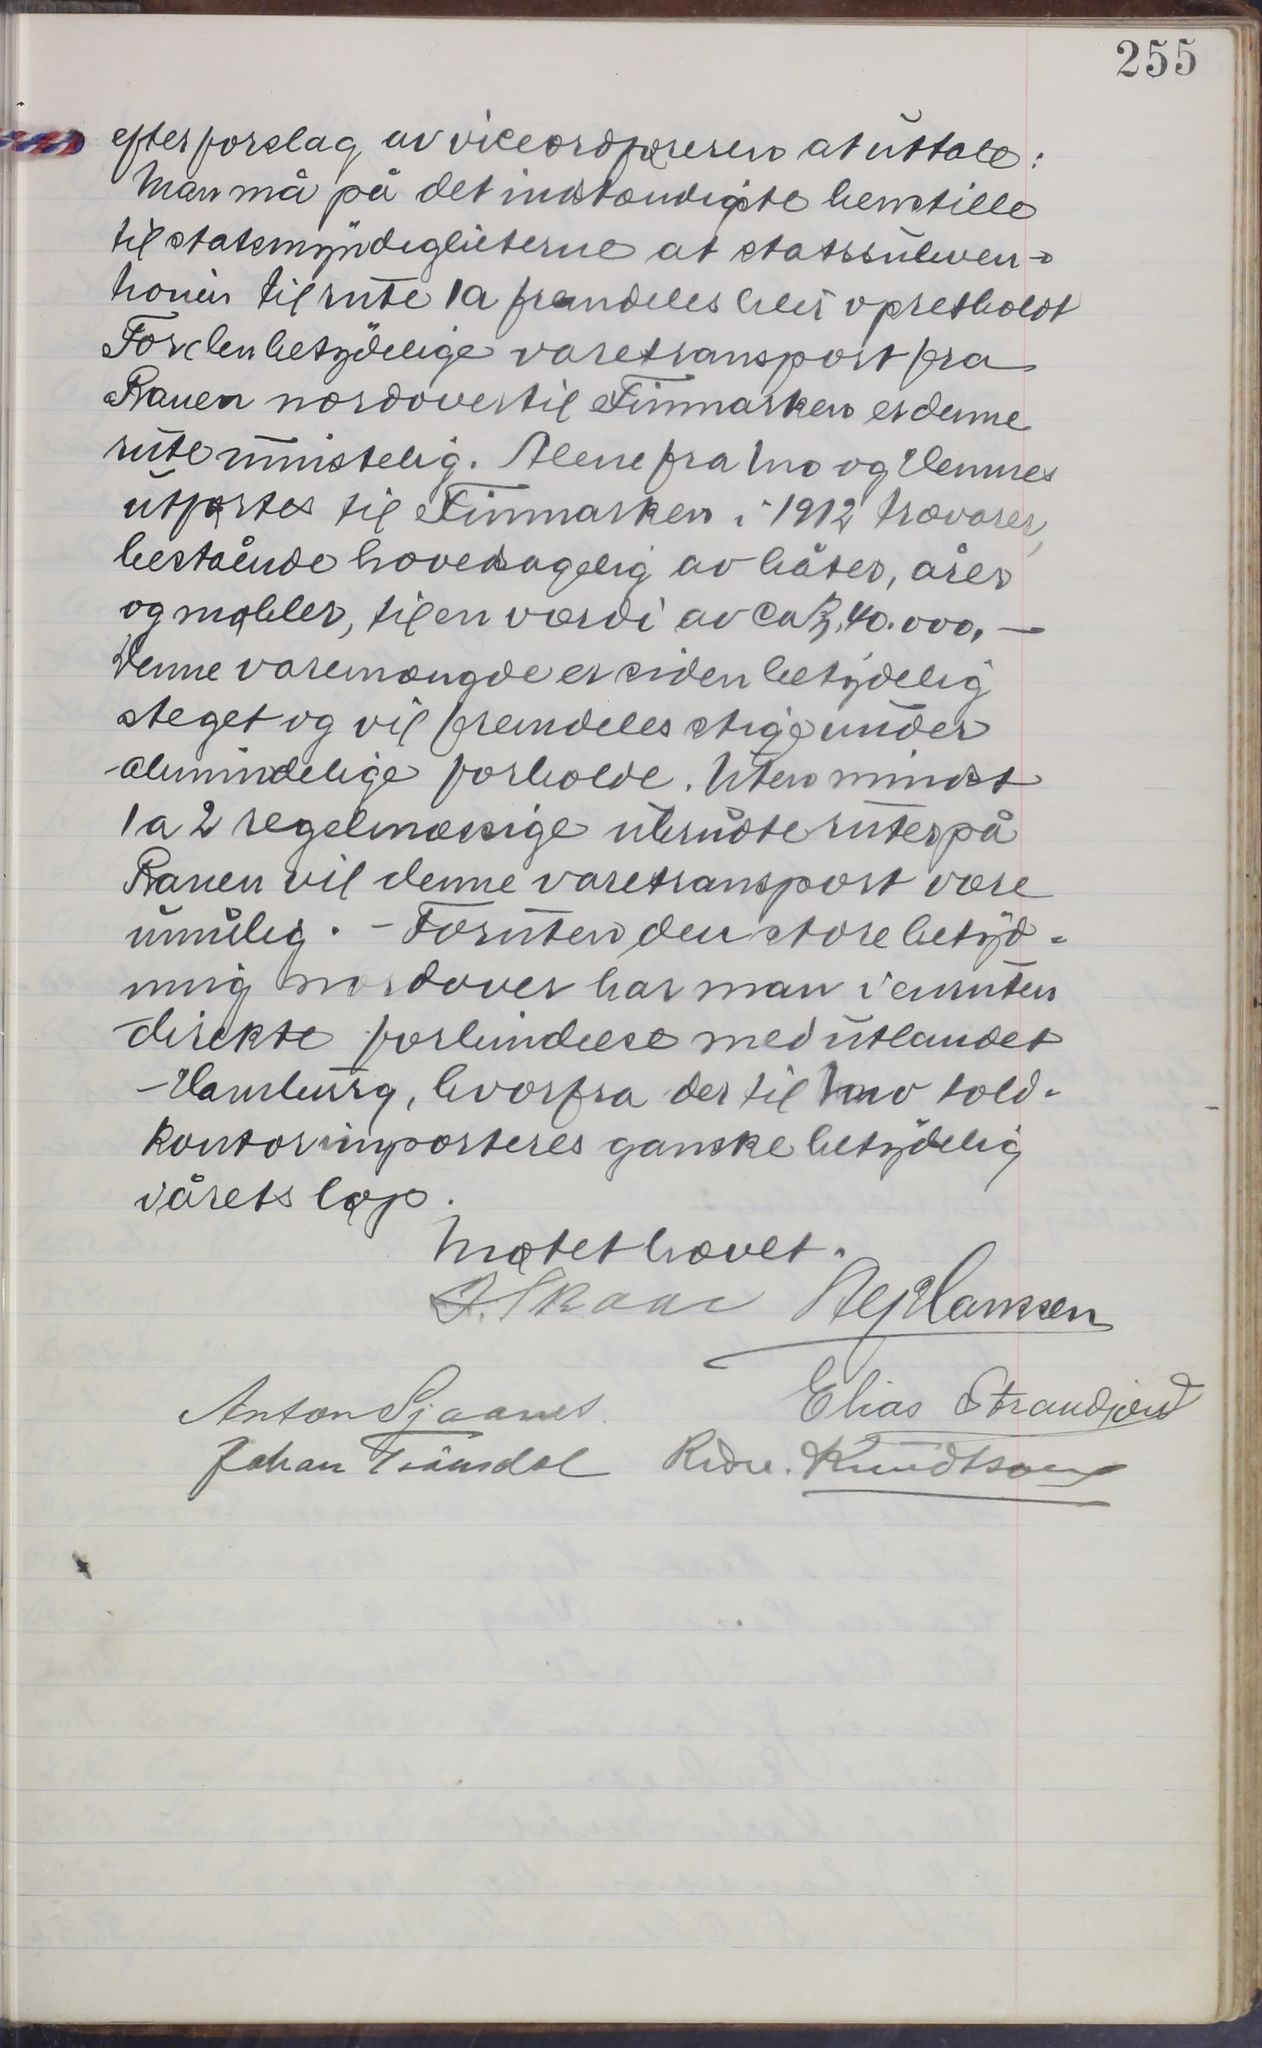 255
efter forslag av viceordføreren at uttale:
Man må på det indstændigste henstille
til statsmyndigheterne at statssubven-
tionen til rute 1a fremdeles blir opretholdt
For den betydelige varetransport fra
Ranen nordover til Finmarken er denne
rute umistelig. Alene fra Mo og Hemnes
utførtes til Finmarken i 1912 trævarer,
bestående hovedsagelig av båter, årer
og møbler, til en værdi av ca kr. 40.000,-
Denne varemængde er siden betydelig
steget og vil fremdeles stige under
almindelige forholde. Uten mindst
1 a 2 regelmæssige ubrudte ruter på
Ranen vil denne varetransport være
umulig. - Foruten den store betyd-
ning nordover har man i enruten
direkte forbindelse med utlandet
- Hamburg, hvorfra der til Mo told-
kontor importeres ganske betydelig
i årets løp.
Møtet hævet.
J. Skaar Alf Hanssen
Anton Sjaanes. Elias Strandjord
Johan Traunsdal Ridv. Knudtsen